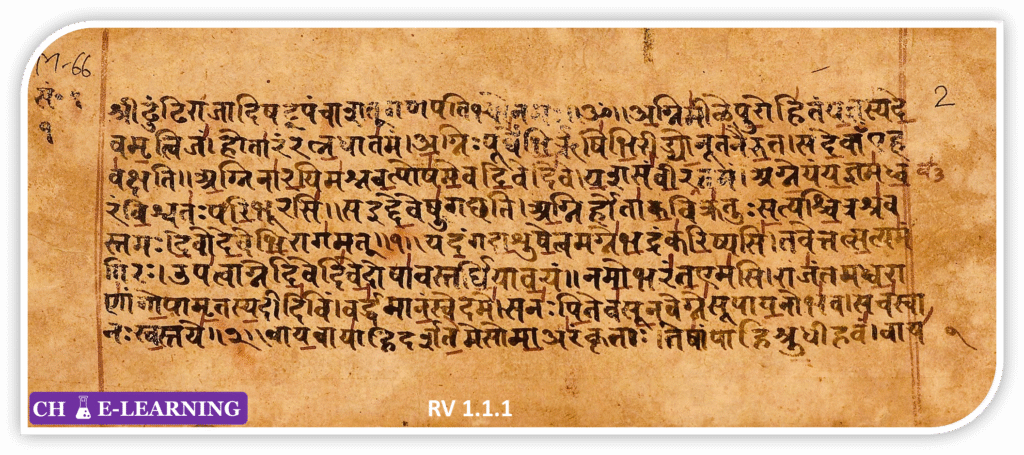 M-66
सं॰ १
१
2
श्रीढुंढिराजादिषट्पंचाशत्गणपतिभ्योनमः॥ॐ॥अग्निमीळेपुरोहितंयज्ञस्यदे
वमृत्विजं।होतारंरत्नधातमं।अग्निःपूर्वेभिर्ऋषिभिरीड्योनूतनैरुत।सदेवाँएह
वक्षति॥अग्निनारयिमश्नवत्पोषमेवदिवेदिवे।यशसंवीरवत्तमं।अग्नेयंयज्ञमध्व
रंविश्वतःपरिभूरसि॥सइद्देवेषुगच्छति।अग्निर्होताकविक्रतुःसत्यश्चित्रश्रव
स्तमः।देवोदेवेभिरागमत्॥१॥यदंगदाशुषेत्वमग्नेभद्रंकरिष्यसि।तवेत्तत्सत्यमं
गिरः।उपत्वाग्नेदिवेदिवेदोषावस्तर्द्धियावयं॥नमोभरंतएमसि।राजंतमध्वरा
णांगोपामृतस्यदीदिविं।वर्द्धमानंस्वेदमे।सनःपितेवसूनवेग्नेसूपायनोभव।सचस्वा
नःस्वस्तये॥२॥वायवायाहिदर्शतेमेसोमाअरंकृताः।तेषांपाहिश्रुधीहवं।वाय
CH E-LEARNING
RV 1.1.1